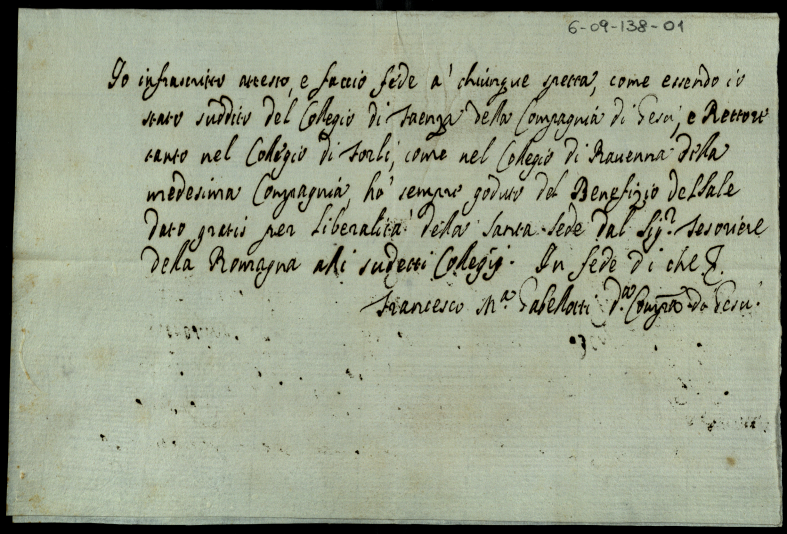 6-09-138-01
Io infrascritto attesto, e faccio fede a' chiunque spetta, come essendo io
stato suddito del Collegio di Faenza della Compagnia di Gesù, e Rettore
tanto nel Collegio di Forlì, come nel Collegio di Ravenna della
medesima Compagnia, hò sempre goduto del Benefizio del Sale
dato gratis per liberalità della Santa Sede dal Sig.r Tesoriere
della Romagna alli sudetti Collegij. In fede di che
Francesco M.a Gabellotti d.a Comp.a di Gesù.